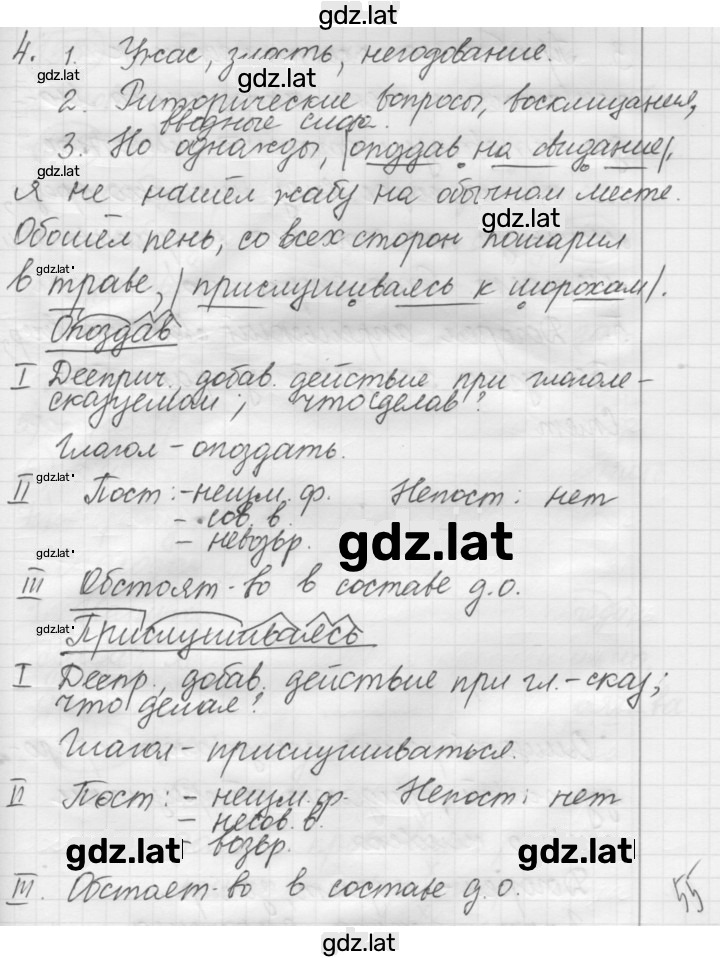 gdz.lat
4. 1. Ужас, злость, негодование.
gdz.lat
gdz.lat
2. Риторические вопросы, восклицания,
вводные слова.
3. Но однажды, |опоздав на свидание|,
gdz.lat
я не нашёл жабу на обычном месте.
gdz.lat
Обошёл пень, со всех сторон пошарил
gdz.lat
в траве, |прислушиваясь к шорохам|.
Опоздав
I Дееприч., добав. действие при глаголе-
сказуемом; что сделав?
Глагол – опоздать.
gdz.lat
II Пост: - неизм. ф. Непост: нет
- сов. в.
- невозвр.
gdz.lat
gdz.lat
III Обстоят-во в составе д.о.
gdz.lat
Прислушиваясь
I Деепр., добав. действие при гл.-сказ;
что делая?
Глагол – прислушиваться.
II Пост: - неизм. ф. Непост: нет
- несов. в.
- возвр.
gdz.lat
gdz.lat
III. Обстает-во в составе д.о.
55
gdz.lat